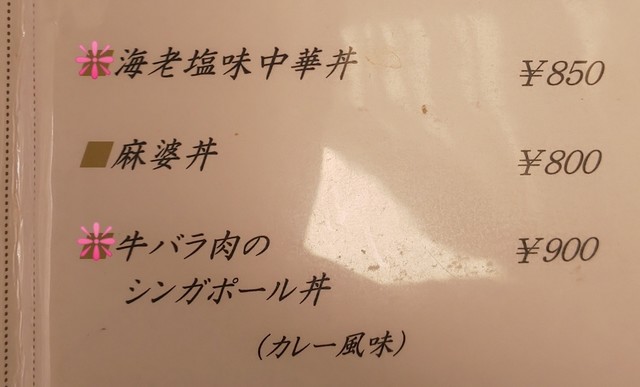 海老塩味中華丼 ￥850
麻婆丼 ￥800
牛バラ肉の ￥900
シンガポール丼
(カレー風味)